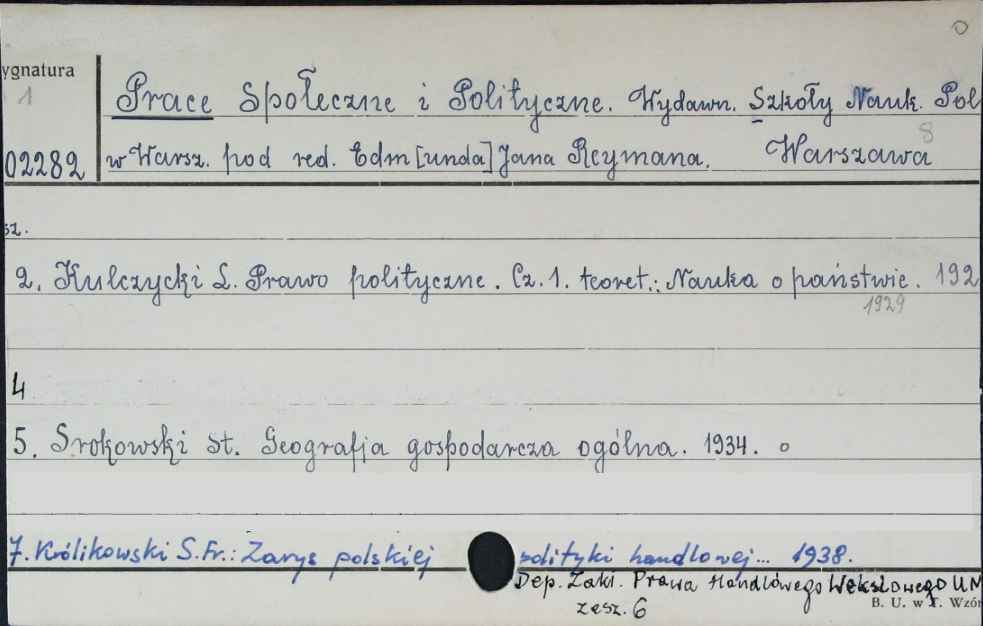 0
ygnatura
1
Prace Społeczne i Polityczne. Wydawn. Szkoły Nauk. Pol
8
02282
w Warsz. pod red. Edm[unda] Jana Reymana. Warszawa
sz.
2. Kulczycki L. Prawo polityczne. Cz. 1. teoret.: Nauka o państwie. 192
1929
4
5. Srokowski St. Geografja gospodarcza ogólna. 1934. o
7. Królikowski S. Fr.: Zarys polskiej polityki handlowej... 1938.
Dep. Zakł. Prawa Handlowego Wekslowego UN
zesz. 6
B. U. w T. Wzór